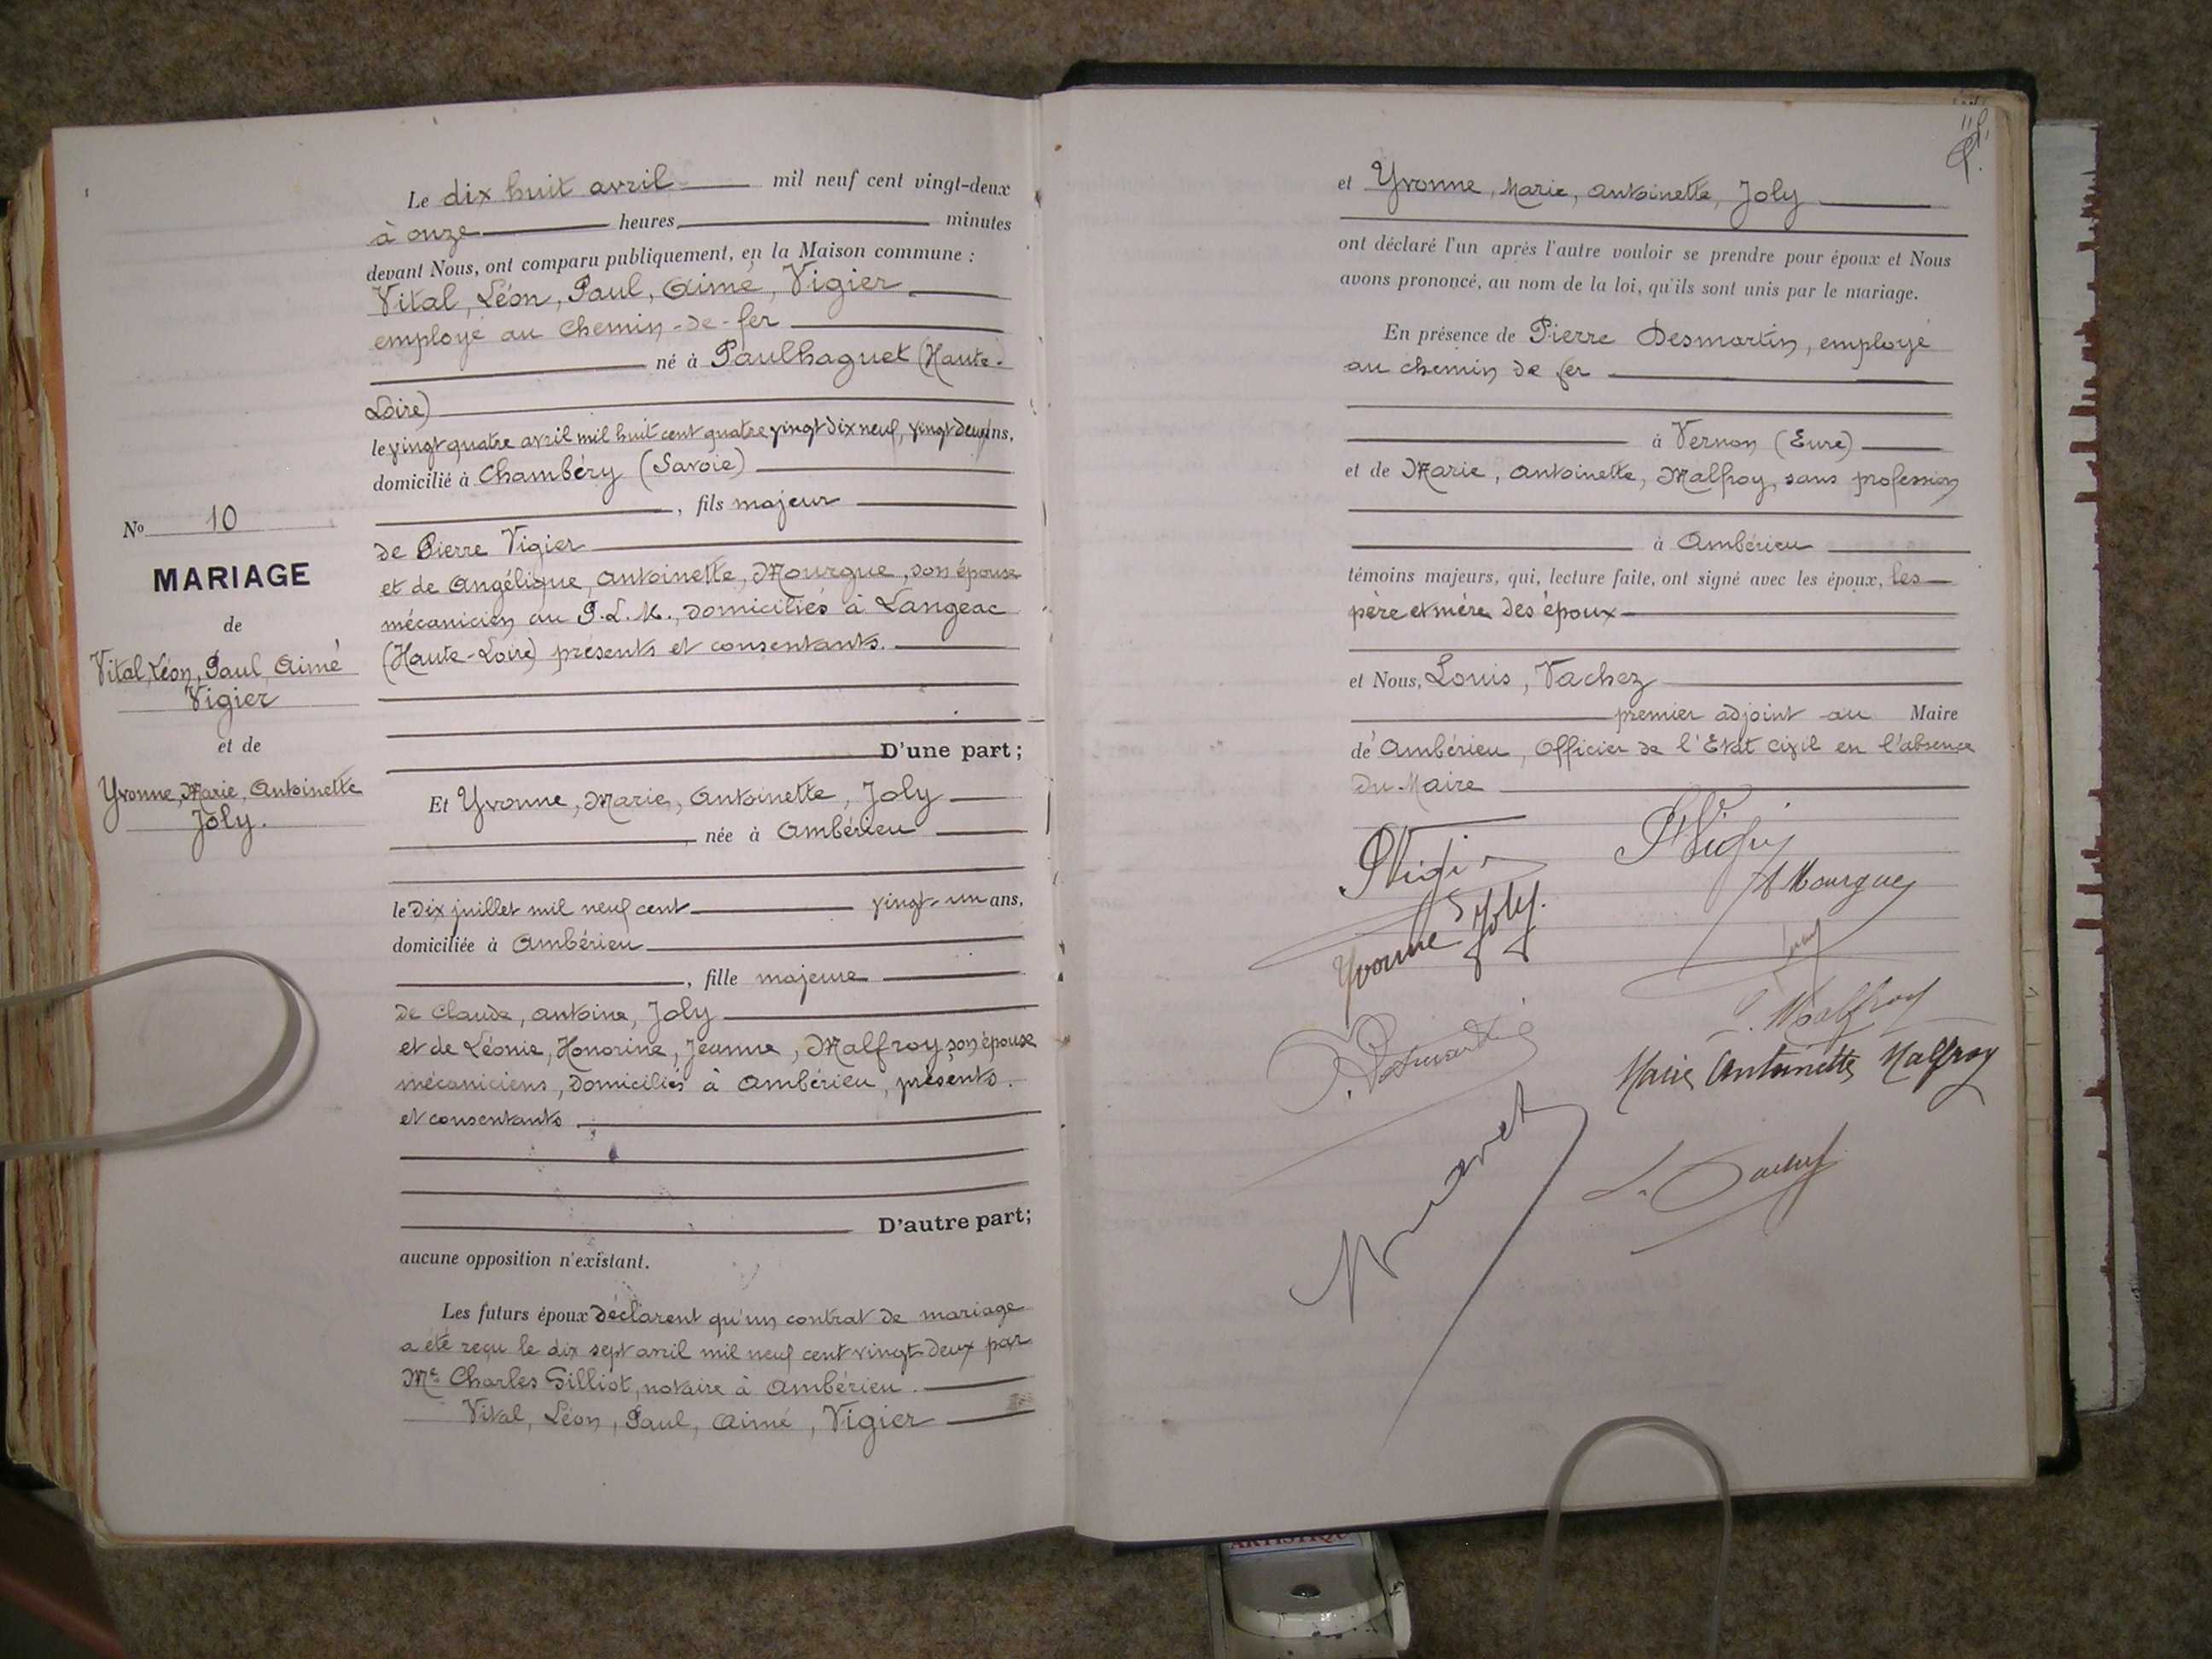 N° 10
MARIAGE
de
Vital, Léon, Paul, Aimé
Vigier
et de
Yvonne, Marie, Antoinette
Joly.
Le dix huit avril mil neuf cent vingt-deux
à onze heures, minutes
devant Nous, ont comparu publiquement, en la Maison commune :
Vital, Léon, Paul, Aimé, Vigier
employé au chemin-de-fer
né à Paulhaguet (Haute-
Loire)
le vingt quatre avril mil huit cent quatre vingt dix neuf, vingt deux ans,
domicilié à Chambéry (Savoie)
, fils majeur
de Pierre Vigier
et de Angélique, Antoinette, Mourgue, son épouse
mécanicien au P.L.M., domiciliés à Langeac
(Haute-Loire) présents et consentants.
D'une part ;
Et Yvonne, Marie, Antoinette, Joly
née à Ambérieu
le dix juillet mil neuf cent vingt-un ans,
domiciliée à Ambérieu
, fille majeure
de Claude, Antoine, Joly
et de Léonie, Honorine, Jeanne, Malfroy, son épouse
mécaniciens, domiciliés à Ambérieu, présents
et consentants
D'autre part ;
aucune opposition n'existant.
Les futurs époux déclarent qu'un contrat de mariage
a été reçu le dix sept avril mil neuf cent vingt-deux par
Me Charles Gilliot, notaire à Ambérieu.
Vital, Léon, Paul, Aimé, Vigier
et Yvonne, Marie, Antoinette, Joly
ont déclaré l'un après l'autre vouloir se prendre pour époux et Nous
avons prononcé, au nom de la loi, qu'ils sont unis par le mariage.
En présence de Pierre Desmartin, employé
au chemin de fer
à Vernon (Eure)
et de Marie, Antoinette, Malfroy, sans profession
à Ambérieu
témoins majeurs, qui, lecture faite, ont signé avec les époux, les
père et mère des époux
et Nous, Louis, Vachez
premier adjoint au Maire
de Ambérieu, Officier de l'Etat civil en l'absence
du Maire
Vigier
Vigier
A Mourgue
Yvonne Joly.
Malfroy
P. Desmartin
Marie Antoinette Malfroy